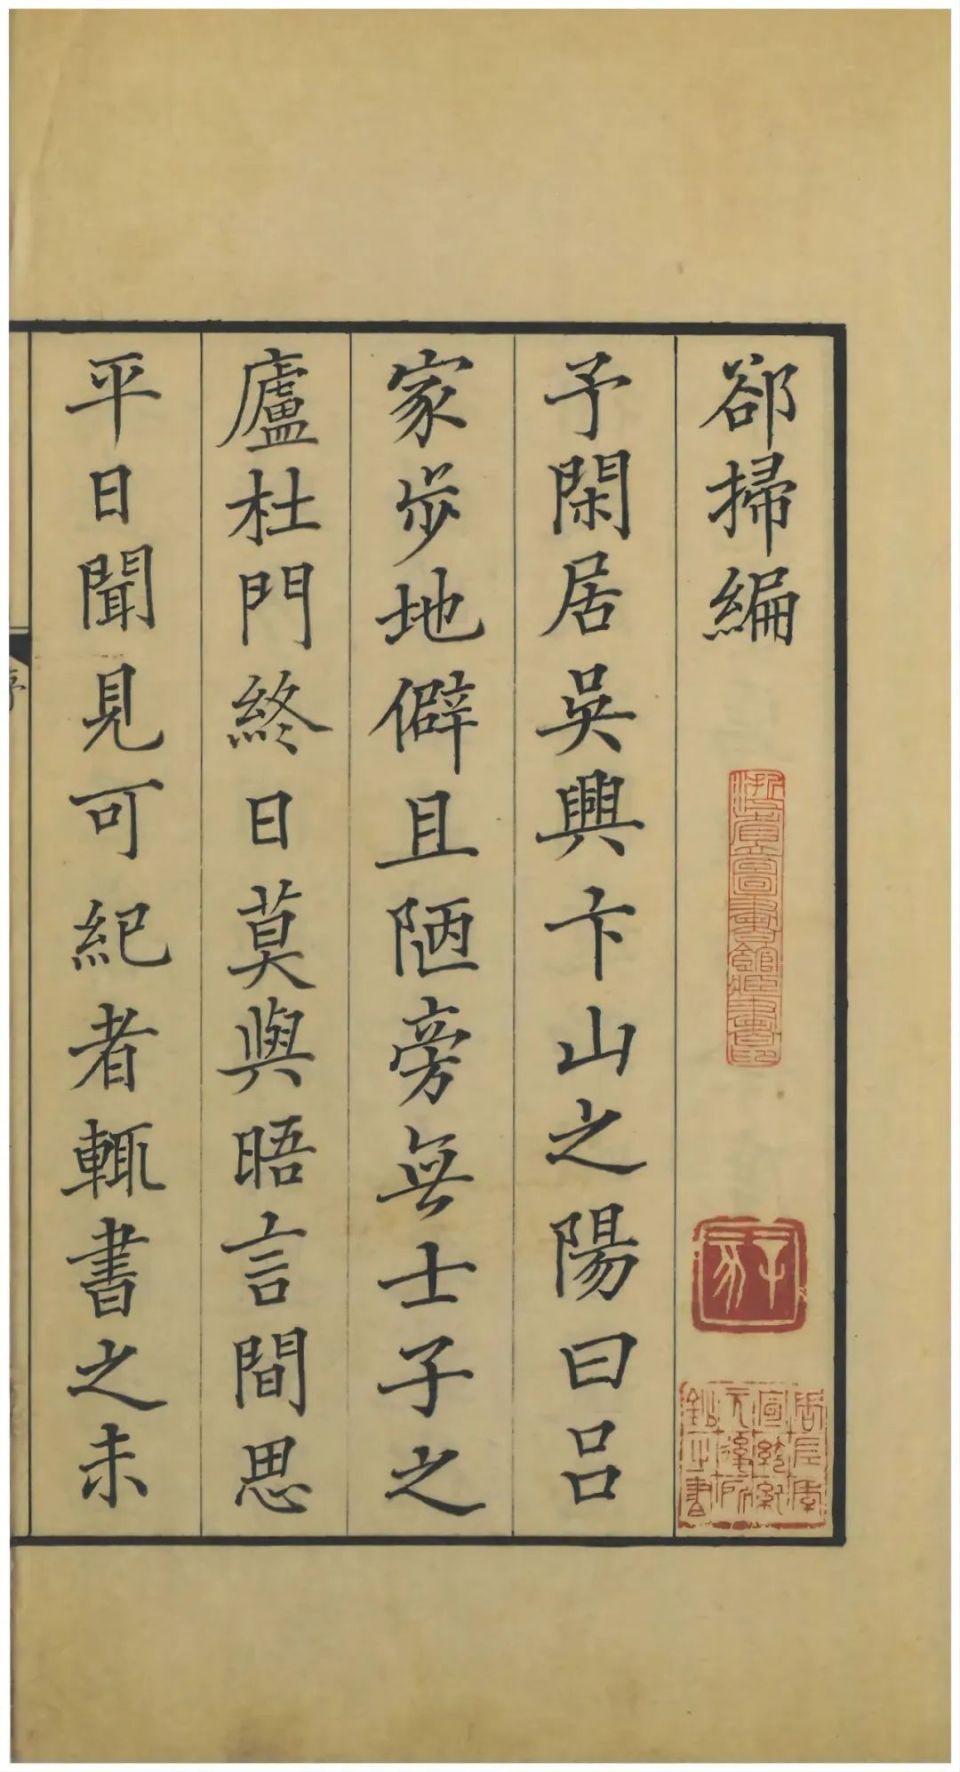 郤掃編
予閑居吳興卞山之陽曰呂
家步地僻且陋旁無士子之
廬杜門終日莫與晤言間思
平日聞見可紀者輒書之未
序